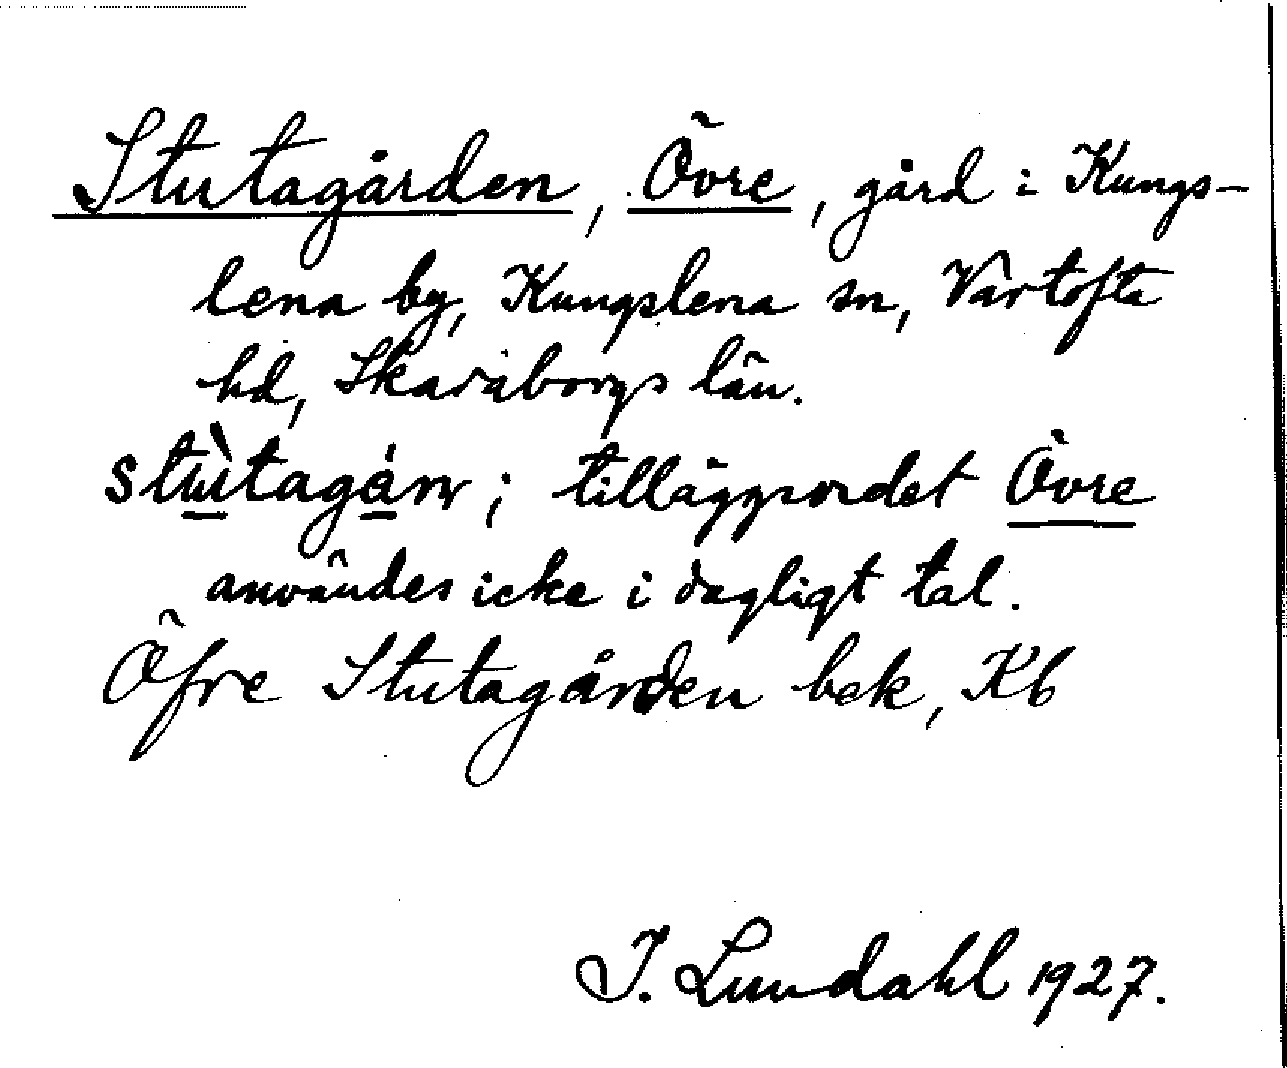 Stutagården, Övre, gård i Kungs-
lena by, Kungslena sn, Vartofta
hd, Skaraborgs län.
stù̱taga̱̍nr; tilläggsordet Övre
användes icke i dagligt tal.
Öfre Stutagården bek, Kb
I. Lundahl 1927.